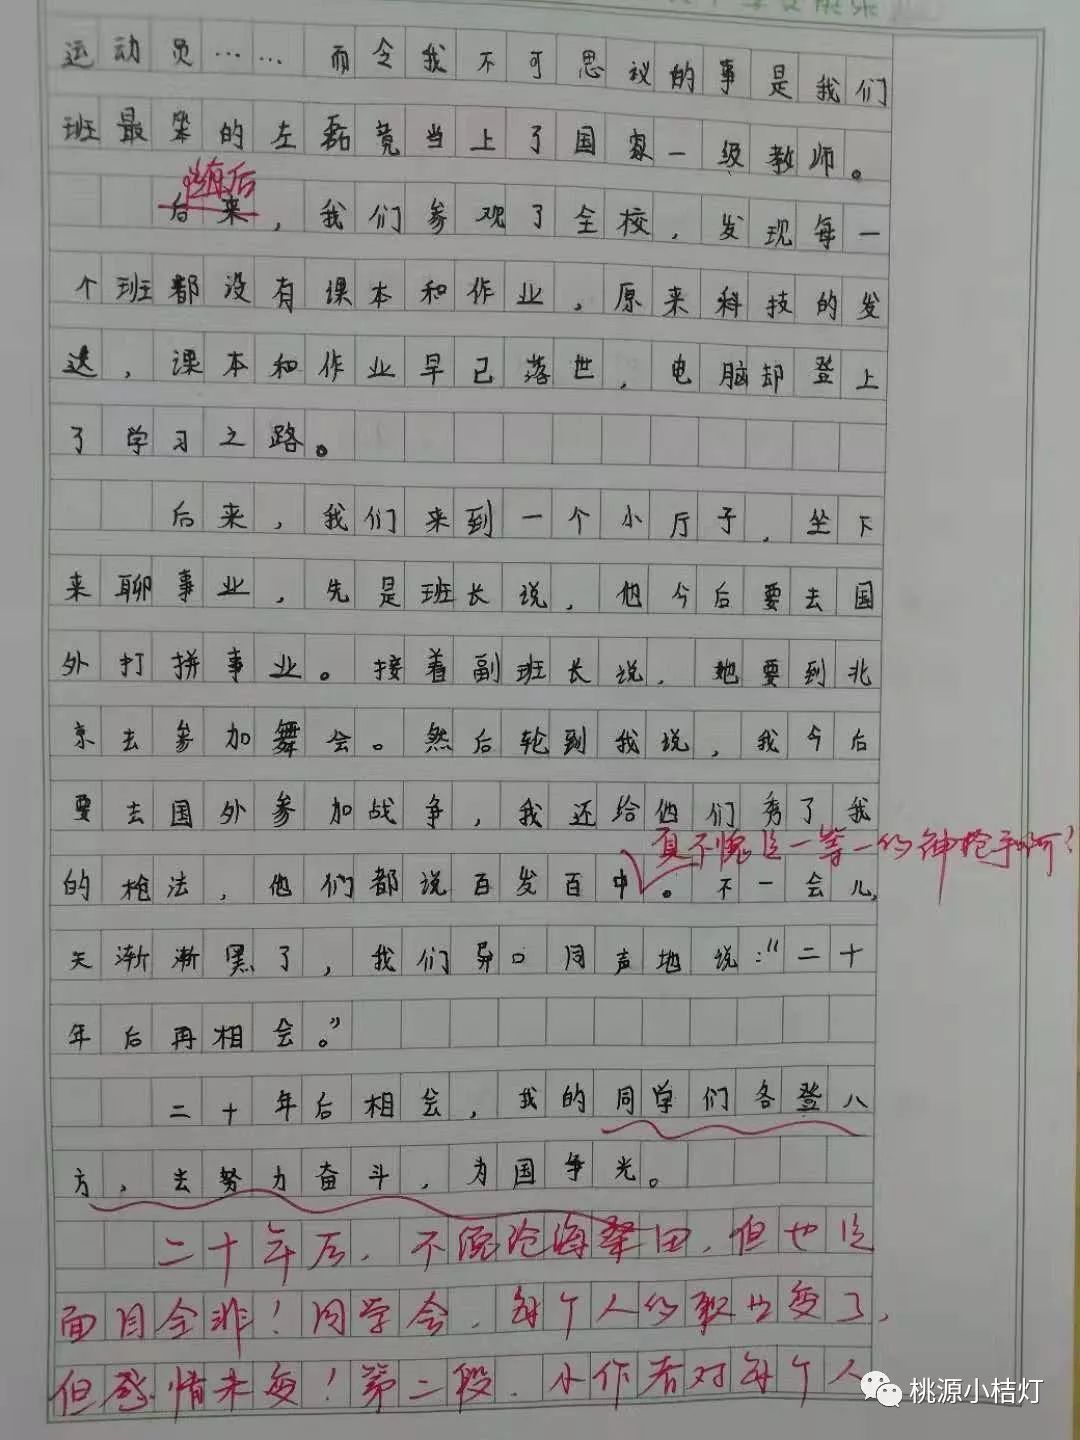 运动员……而令我不可思议的事是我们
班最笨的左磊竟当上了国家一级教师。
随后
后来,我们参观了全校,发现每一
个班都没有课本和作业,原来科技的发
达,课本和作业早已落世,电脑却登上
了学习之路。
后来,我们来到一个小厅子,坐下
来聊事业,先是班长说,他今后要去国
外打拼事业。接着副班长说,她要到北
京去参加舞会。然后轮到我说,我今后
要去国外参加战争,我还给他们秀了我
真不愧是一等一的神枪手啊?
的枪法,他们都说百发百中。不一会儿,
天渐渐黑了,我们异口同声地说:“二十
年后再相会。”
二十年后相会,我的同学们各登八
方,去努力奋斗,为国争光。
二十年后,不愧沧海桑田,但也是
面目全非!同学会,每个人的职业变了,
但感情未变!第二段,小作者对每个人
桃源小桔灯